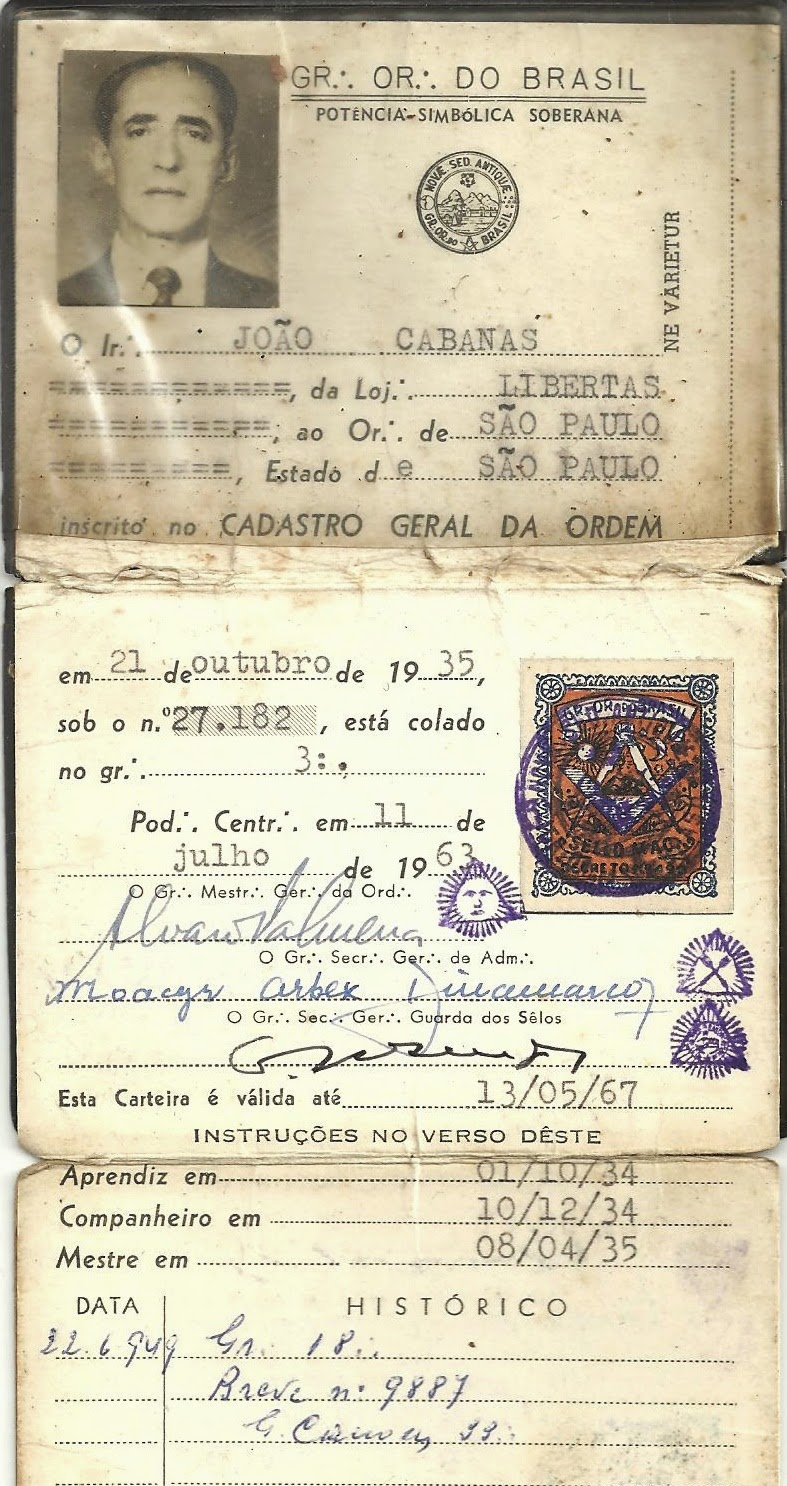 GR∴ OR∴ DO BRASIL
POTÊNCIA-SIMBÓLICA SOBERANA
NOVÆ SED ANTIQUÆ
GR. OR. DO BRASIL
NE VARIETUR
O Ir∴ JOÃO CABANAS
============, da Loj∴ LIBERTAS
============, ao Or∴ de SÃO PAULO
==========, Estado de SÃO PAULO
inscrito no CADASTRO GERAL DA ORDEM
em 21 de outubro de 1935,
sob o n.º 27.182, está colado
no gr∴ 3:.
GR. OR. DO BRASIL
SELLO MAÇ.
Pod∴ Centr∴ em 11 de
julho de 1963
O Gr∴ Mestr∴ Ger∴ da Ord∴
O Gr∴ Secr∴ Ger∴ de Adm∴
Moacyr Arbex Dinamarco
O Gr∴ Sec∴ Ger∴ Guarda dos Sêlos
Esta Carteira é válida até 13/05/67
INSTRUÇÕES NO VERSO DÊSTE
Aprendiz em 01/10/34
Companheiro em 10/12/34
Mestre em 08/04/35
DATA HISTÓRICO
22.6.949 Gr. 18∴
Breve nº 9887